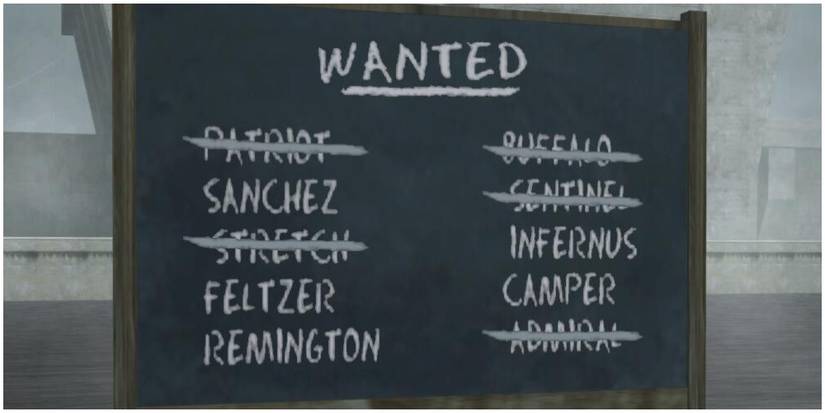 WANTED
PATRIOT
SANCHEZ
STRETCH
FELTZER
REMINGTON
BUFFALO
SENTINEL
INFERNUS
CAMPER
ADMIRAL